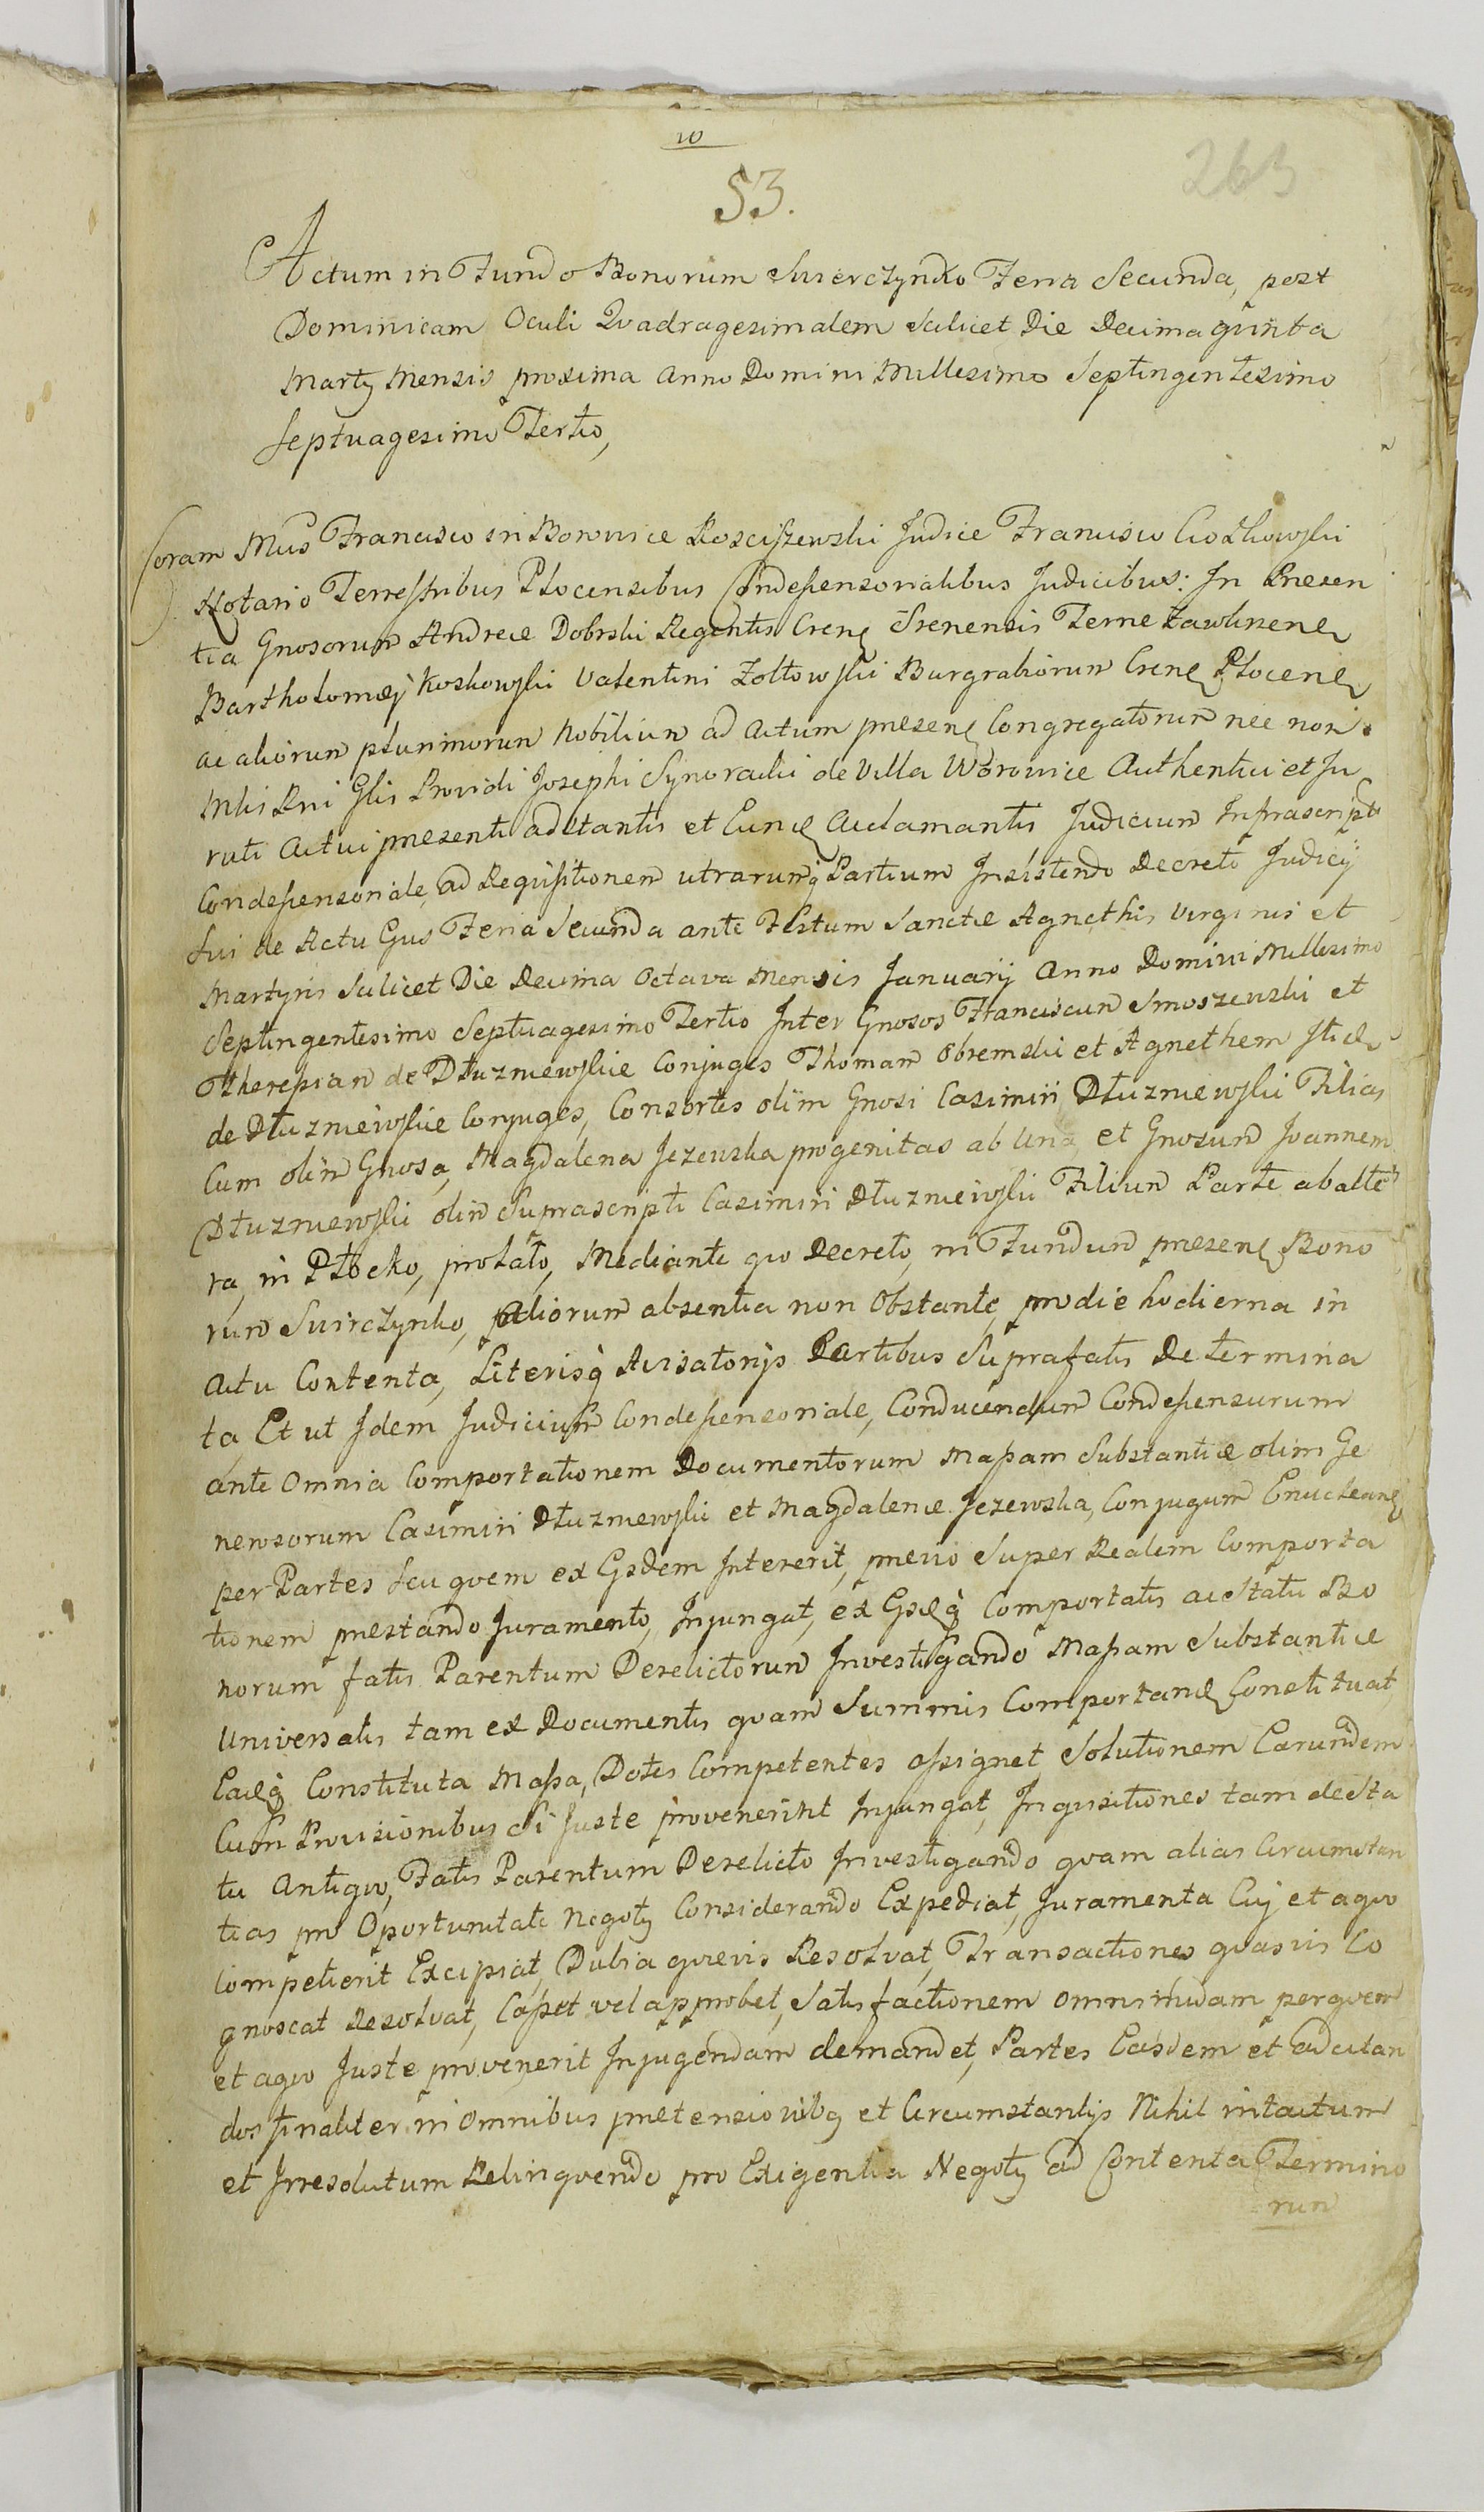 10
53.
263
Actum in Fundo Bonorum Swierczynko Feria Secunda, post
Dominicam Oculi Qvadragesimalem Scilicet Die Decima qvinta
Martij Mensis proxima Anno Domini Millesimo Septingentesimo
Septuagesimo Tertio,
Coram Mcis Francisco in Borowice Rosciszewski Judice Francisco Ciothowski
Notario Terrestribus Plocensibus Condepensorialibus Judicibus: In Presen
tia Gnosorum Andreæ Dobrski Regentis Cren Srenensis Terræ Zawkrzen
Bartholomæj Koskowski Valentini Zołtowski Burgrabiorum Cren Plocen
ac aliorum plurimorum Nobilium ad Actum presen Congregatorum nec non
Mlis Rni Glis Providi Josephi Synoradzki de Villa Worowice Authentici et Ju
rati Actui presenti adstantis et Eund Acclamantis Judicium Infrascript
Condepensoriale, ad Reqvisitionem utrarumq Partium Insistendo Decreto Judicij
sui de Actu Ejus Feria Secunda ante Festum Sanctæ Agnethis Virginis et
Martyris Scilicet Die Decima Octava Mensis Januarij Anno Domini Millesimo
Septingentesimo Septuagesimo Tertio Inter Gnosos Franciscum Smoszewski et
Theresiam de Dłuzniewskie Conjuges Thomam Obremski et Agnethem
de Dłuzniewskie Conjuges, Consortes olim Gnosi Casimiri Dłuzniewski Filias
Cum olim Gnosa, Magdalena Jezewska progenitas ab Una, et Gnosum Joannem
Dłuzniewski olim Suprascripti Casimiri Dłuzniewski Filium Parte ab alte
ra, in Płocko, prolato, Mediante qvo Decreto, in Fundum presen Bono
rum Swirczynko, Aliorum absentia non Obstante, pro die hodierna in
Actu Contenta, Literisq Avisatorijs Partibus Suprafatis Determina
ta Et ut Idem Judicium Condepensoriale, Conducendum Condepensurum
ante Omnia Comportationem Documentorum Massam Substantiæ olim Ge
nerosorum Casimiri Dłuzniewski et Magdalenæ Jezewska, Conjugum Enuclean
per Partes seu qvem ex Eisdem Intererit, previo Super Realem Comporta
tionem prestando Juramento, Injungat, ex Eisq Comportatis ac Statu Bo
norum fatis Parentum Derelictorum Investigando Massam Substantiæ
Universalis tam ex Documentis qvam Summis Comportan Constituat
Eaq Constituta Massa, Dotes Competentes Assignet Solutionem Earundem
Cum Provisionibus Si Juste provenerint Injungat, Inqvisitiones tam de Sta
tu Antiqvo, Fatis Parentum Derelicto Investigando qvam alias Circumstan
tias pro Oportunitate Negotij Considerando Expediat, Juramenta Cuj et a qvo
Competierit Excipiat, Dubia qvævis Resolvat, Transactiones qvasvis Co
gnoscat Resolvat, Casset vel approbet, Satisfactionem omnimodam per qvem
et a qvo Juste provenerit Injugendam demandet, Partes Easdem et adcitan
dos finaliter in Omnibus pretensionibq et Circumstantijs Nihil intactum
et Irresolutum Relinqvendo pro Exigentia Negotij ad Contenta Termino
rum